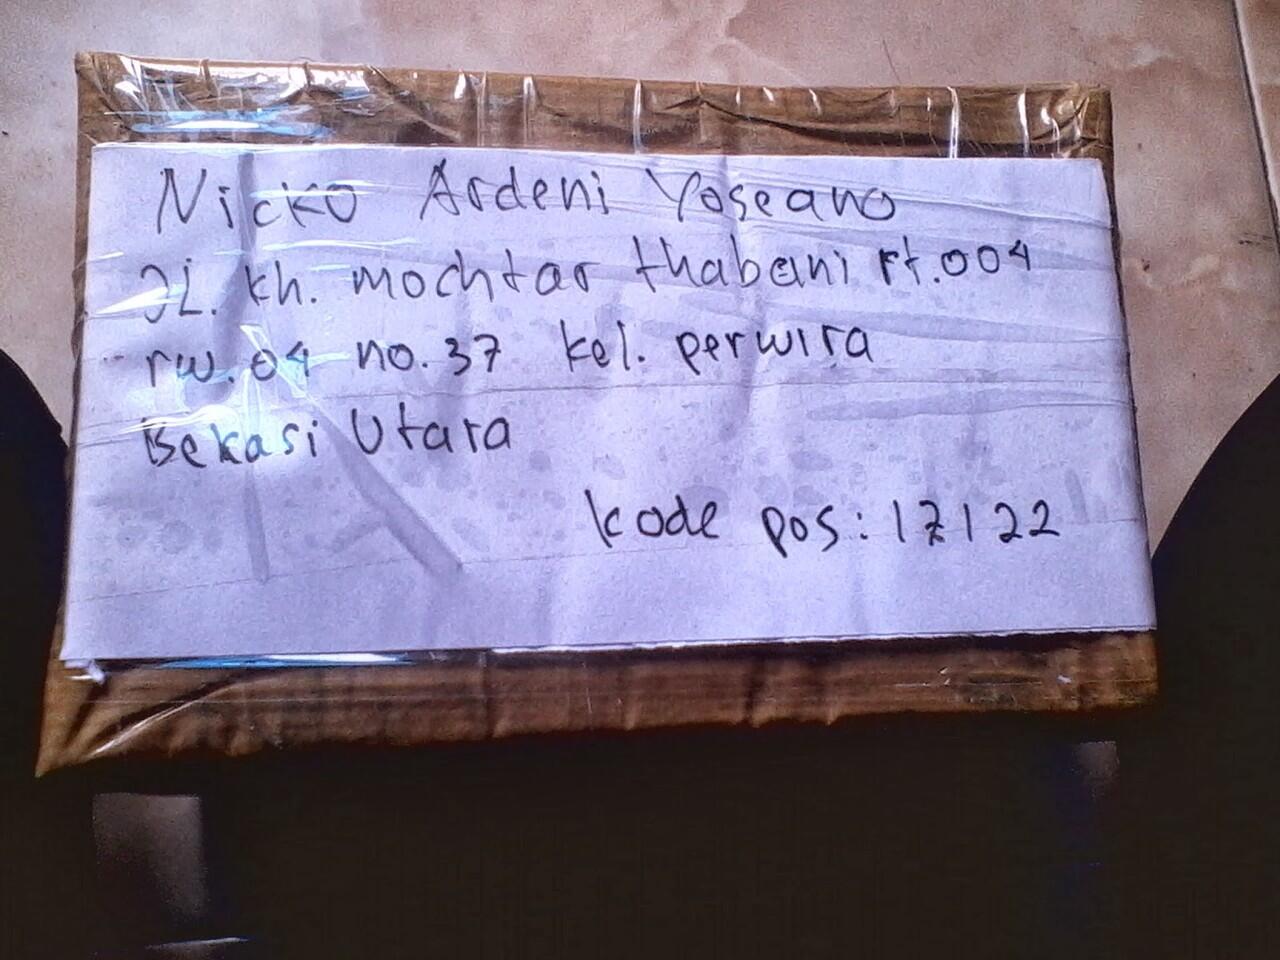 Nicko Ardeni Yoseano
JL. kh. mochtar thabani rt.004
rw.04 no.37 kel. perwira
Bekasi Utara
kode pos: 17122